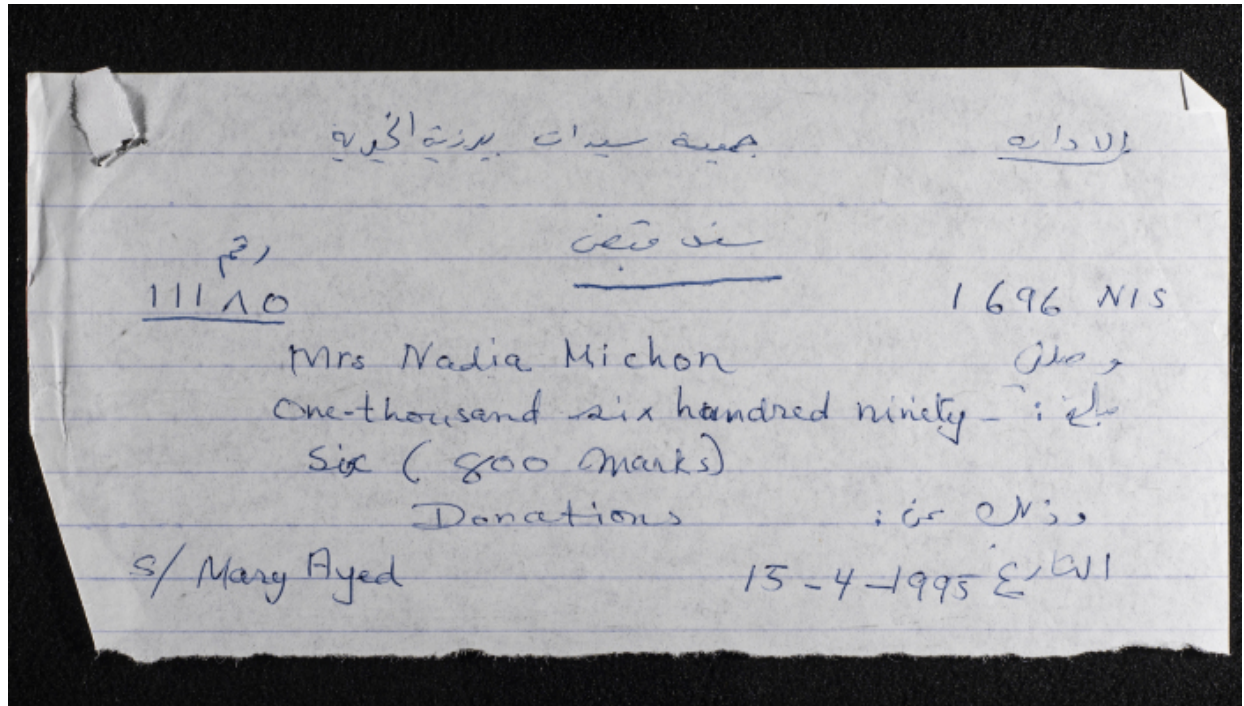 الاداره جمعية سيدات بيرزيت الخيرية
سند قبض
رقم
1696 NIS ١١١٨٥
وصلني Mrs Nadia Michon
مبلغ : One-thousand six hundred ninety-
six (800 marks)
وذلك عن : Donations
التاريخ 15-4-1995 s/ Mary Ayed